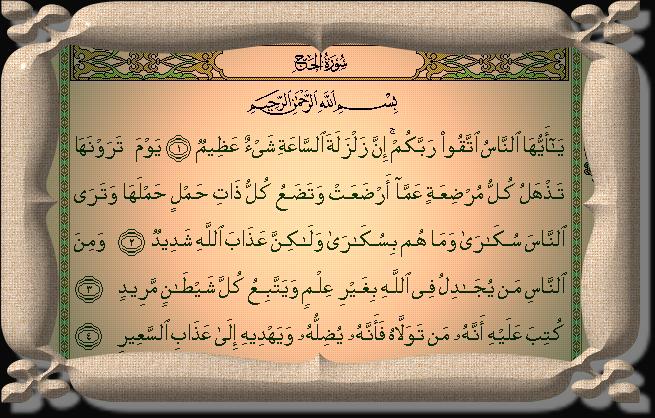 سُورَةُ الحَجِّ
بِسْمِ اللَّهِ الرَّحْمَٰنِ الرَّحِيمِ
يَـٰٓأَيُّهَا ٱلنَّاسُ ٱتَّقُوا۟ رَبَّكُمْ ۚ إِنَّ زَلْزَلَةَ ٱلسَّاعَةِ شَىْءٌ عَظِيمٌ ١ يَوْمَ تَرَوْنَهَا
تَذْهَلُ كُلُّ مُرْضِعَةٍ عَمَّآ أَرْضَعَتْ وَتَضَعُ كُلُّ ذَاتِ حَمْلٍ حَمْلَهَا وَتَرَى
ٱلنَّاسَ سُكَـٰرَىٰ وَمَا هُم بِسُكَـٰرَىٰ وَلَـٰكِنَّ عَذَابَ ٱللَّهِ شَدِيدٌ ٢ وَمِنَ
ٱلنَّاسِ مَن يُجَـٰدِلُ فِى ٱللَّهِ بِغَيْرِ عِلْمٍ وَيَتَّبِعُ كُلَّ شَيْطَـٰنٍ مَّرِيدٍ ٣
كُتِبَ عَلَيْهِ أَنَّهُۥ مَن تَوَلَّاهُ فَأَنَّهُۥ يُضِلُّهُۥ وَيَهْدِيهِ إِلَىٰ عَذَابِ ٱلسَّعِيرِ ٤